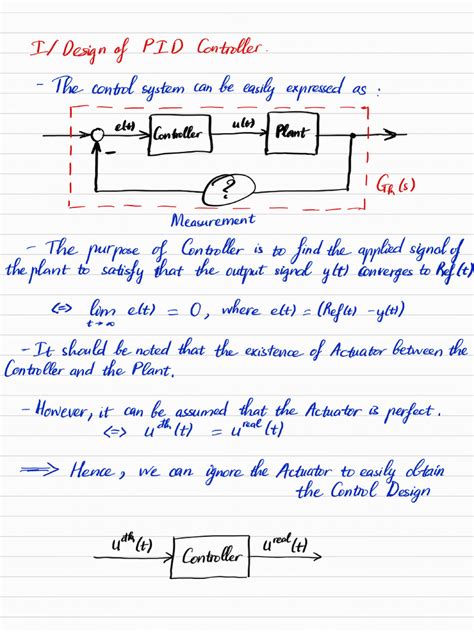 I/ Design of PID Controller.
- The control system can be easily expressed as :
e(t) Controller u(t) Plant
-
?
G_TR(s)
Measurement
- The purpose of Controller is to find the applied signal of
the plant to satisfy that the output signal y(t) converges to Ref(t)
<=> lim e(t) = 0, where e(t) = (Ref(t) - y(t))
t→∞
- It should be noted that the existence of Actuator between the
Controller and the Plant.
- However, it can be assumed that the Actuator is perfect.
<=> u^th(t) = u^real(t)
=> Hence, we can ignore the Actuator to easily obtain
the Control Design
u^th(t) Controller u^real(t)